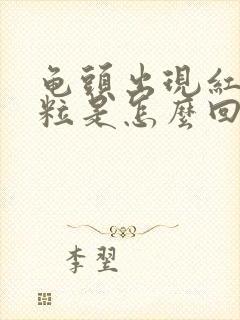 龟頭出現紅
粒是怎麼回
李翌